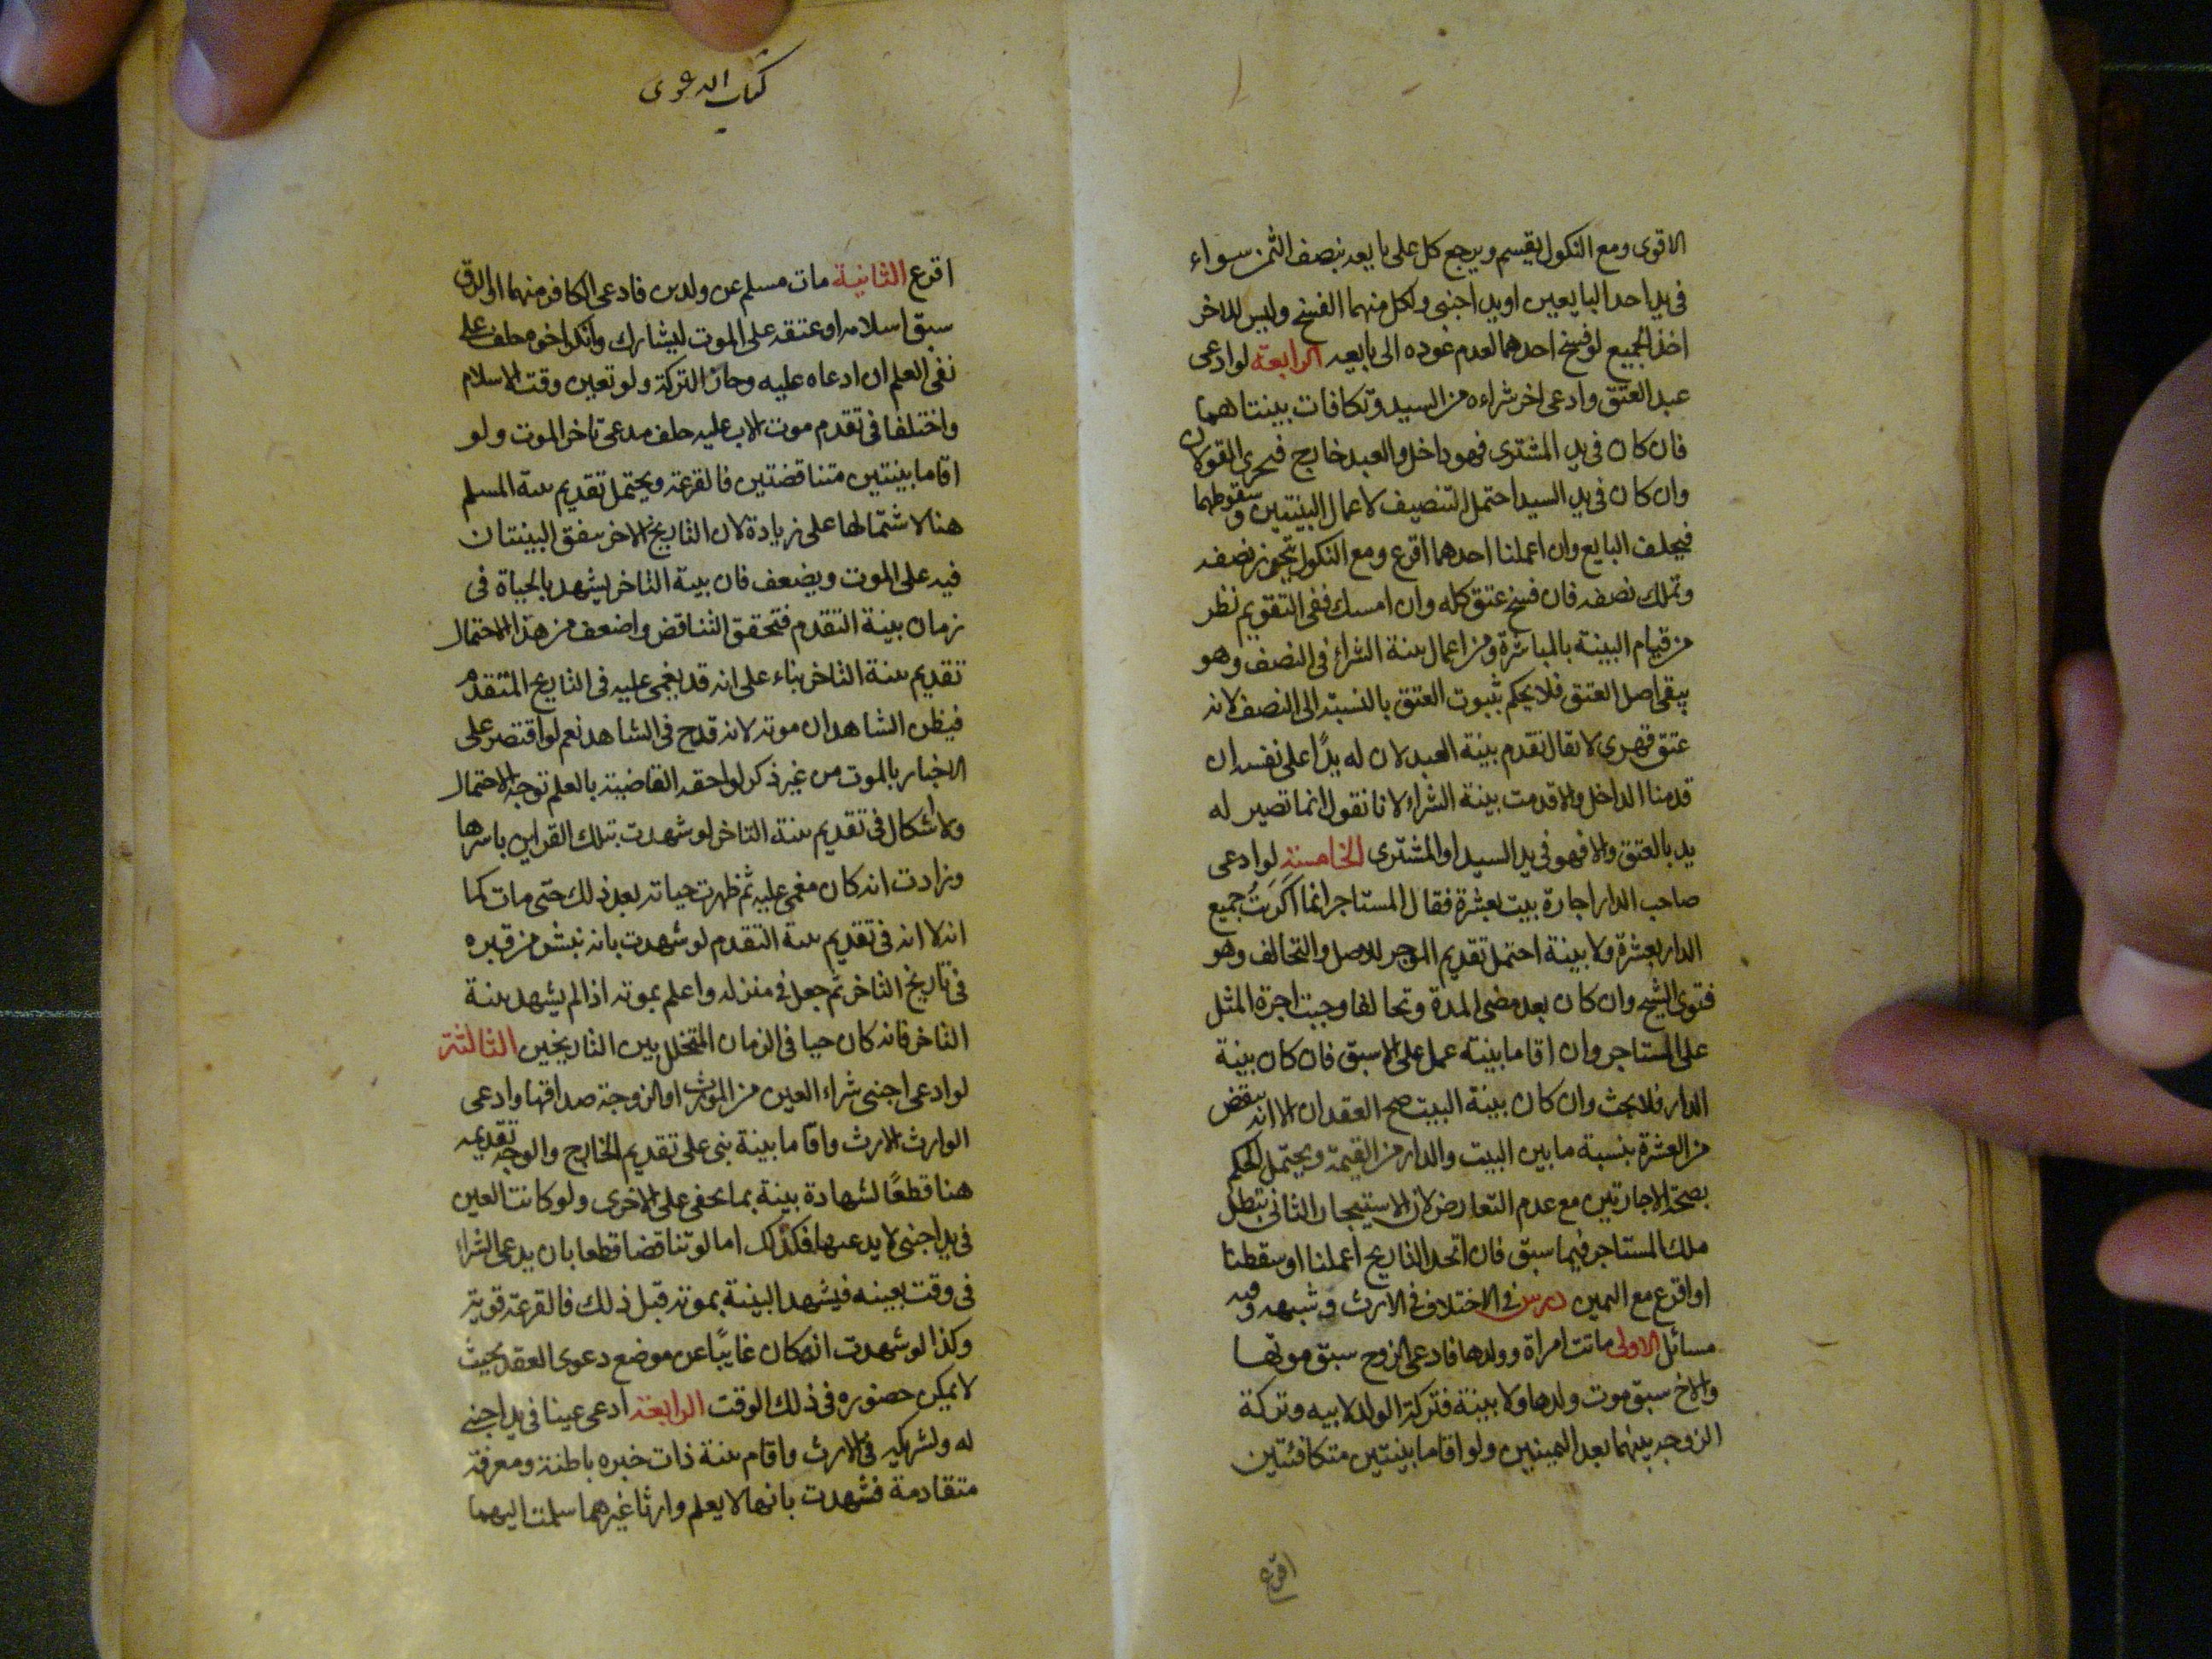 الاقوى ومع النكول يقسم ويرجع كل على بايعه بنصف الثمن سواء
فى يد احد البايعين او يد اجنبى ولكل منهما الفسخ وليس للاخر
اخذ الجميع لو فسخ احدهما لعدم عوده الى بايعه الرابعة لو ادعى
عبد العتق وادعى اخر شراءه من السيد وتكافات بينتاهما
فان كان فى يد المشترى فهو داخل والعبد خارج فيجرى القولان
وان كان فى يد السيد احتمل التنصيف لاعمال البينتين وسقوطهما
فيحلف البايع وان اعملنا احدهما اقرع ومع النكول يتحرر نصفه
وتملك نصفه فان فسخ عتق كله وان امسك ففى التقويم نظر
من قيام البينة بالمباشرة ومن اعمال بينة الشراء فى النصف وهو
يبقى اصل العتق فلا يحكم بثبوت العتق بالنسبة الى النصف لانه
عتق قهرى لا يقال تقدم بينة العبد لان له يدًا على نفسه ان
قدمنا الداخل والا قدمت بينة الشراء لانا نقول انما تصير له
يد بالعتق والا فهو فى يد السيد او المشترى الخامسة لو ادعى
صاحب الدار اجارة بيت بعشرة فقال المستاجر انما اكريت جميع
الدار بعشرة ولا بينة احتمل تقديم الموجر للاصل والتحالف وهو
فتوى الشيخ وان كان بعد مضى المدة وتحالفا وجبت اجرة المثل
على المستاجر وان اقاما بينة عمل على الاسبق فان كان بينة
الدار فلا بحث وان كان بينة البيت صح العقدان الا انه ينقض
من العشرة بنسبة ما بين البيت والدار من القيمة ويحتمل الحكم
بصحة الاجارتين مع عدم التعارض لان الاستيجار الثانى يبطل
ملك المستاجر فيما سبق فان اتحد التاريخ اعملنا او سقطنا
او اقرع مع اليمين درس فى الاختلاف فى الارث وشبهه وفيه
مسائل الاولى ماتت امراة وولدها فادعى الزوج سبق موتها
والاخ سبق موت ولدها ولا بينة فتركة الولد لابيه وتركة
الزوجة بينهما بعد اليمينين ولو اقاما بينتين متكافئتين
اقرع
كتاب الدعوى
اقرع الثانية مات مسلم عن ولدين فادعى الكافر منهما او الرق
سبق اسلامه او عتقه على الموت ليشارك وانكر اخوه حلف على
نفى العلم ان ادعاه عليه وحاز التركة ولو تعين وقت الاسلام
واختلفا فى تقدم موت الاب عليه حلف مدعى تاخر الموت ولو
اقاما بينتين متناقضتين فالقرعة ويحتمل تقديم بينة المسلم
هنا لاشتمالها على زيادة لان التاريخ الاخر يتفق البينتان
فيه على الموت ويضعف فان بينة التاخر يشهد بالحياة فى
زمان بينة التقدم فتحقق التناقض واضعف من هذا الاحتمال
تقديم بينة التاخر بناء على انه قد يغمى عليه فى التاريخ المتقدم
فيظن الشاهدان موته لانه قدح فى الشاهد نعم لو اقتصر على
الاخبار بالموت من غير ذكر لواحقه القاضية بالعلم توجه الاحتمال
ولا اشكال فى تقديم بينة التاخر لو شهدت بتلك القراين باسرها
وزادت انه كان مغمى عليه ثم ظهرت حياته بعد ذلك حتى مات كما
انه لا انه فى تقديم بينة التقدم لو شهدت بانه نبش من قبره
فى تاريخ التاخر ثم جعل فى منزله واعلم بموته اذا لم يشهد بينة
التاخر فانه كان حيا فى الزمان المتخلل بين التاريخين الثالثة
لو ادعى اجنبى شراء العين من المورث او الزوجة صداقها وادعى
الوارث الارث واقاما بينة بنى على تقديم الخارج والوجه تقديمه
هنا قطعًا لشهادة بينة بما يخفى على الاخرى ولو كانت العين
فى يد اجنبى لا يدعيها فكذلك اما لو تناقضا قطعا بان يدعى الشراء
فى وقت بعينه فيشهد البينة بموته قبل ذلك فالقرعة قوية
وكذا لو شهدت انه كان غايبًا عن موضع دعوى العقد بحيث
لا يمكن حضوره فى ذلك الوقت الرابعة ادعى عينا فى يد اجنبى
له ولشريكه فى الارث واقام بينة ذات خبره باطنة ومعرفة
متقادمة فشهدت بانها لا يعلم وارثا غيرهما سلمت اليهما